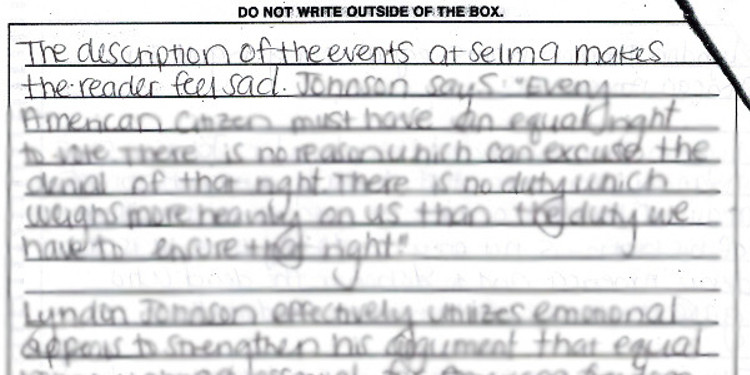 DO NOT WRITE OUTSIDE OF THE BOX.
The description of the events at selma makes
the reader feel sad. Johnson says "Every
American Citizen must have an equal right
to vote There is no reason which can excuse the
denial of that right There is no duty which
weighs more heavily on us than the duty we
have to ensure that right."
Lyndon Johnson effectively utilizes emotional
appeals to strengthen his argument that equal